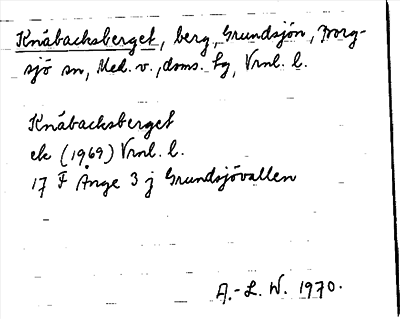 Knåbacksberget, berg, Grundsjön, Borg-
sjö sn, Med. v., doms. hg, Vrnl. l.
Knåbacksberget
ek (1969) Vrnl. l.
17 F Ånge 3 j Grundsjövallen
A.-L. W. 1970.